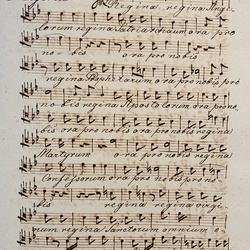 Regina, regina Ange-
lorum regina Patriarcharum ora pro
no - bis ora pro nobis
regina Prophetarum ora pro nobis pro
no bis regina Apostolorum ora pro no-
bis ora pro nobis ora pro nobis regina
Martyrum ora pro nobis
Confessorum ora pro nobis pro no-
bis regina regina virgi-
num regina Sanctorum omnium o-